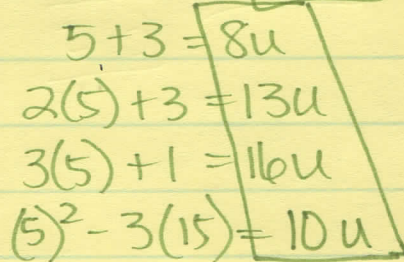 5+3 = 8u
2(5)+3 = 13u
3(5)+1 = 16u
(5)² - 3(15) = 10u